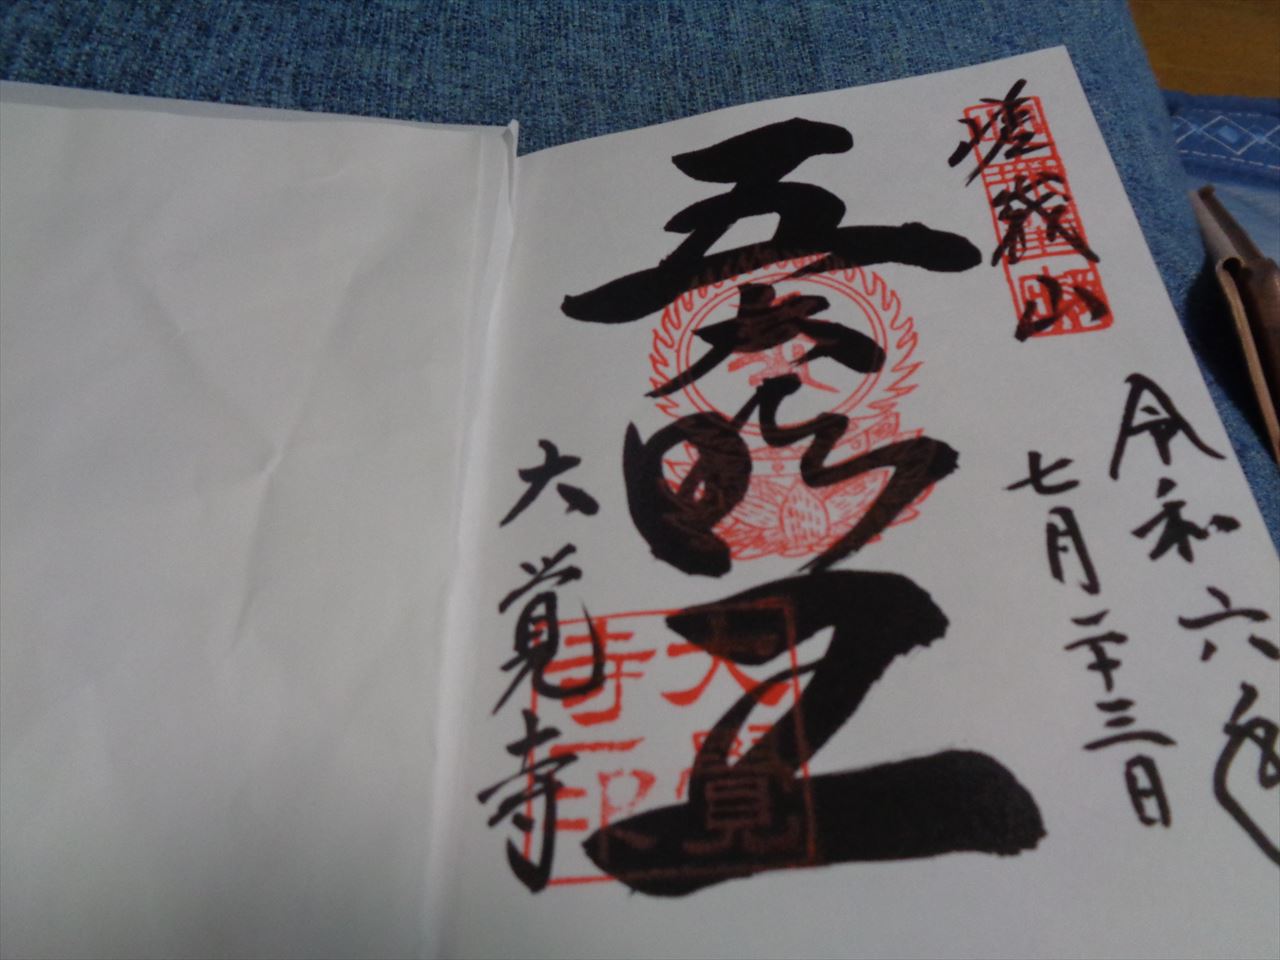 嵯峨山
令和六年
七月二十三日
五大明王
大覚寺
大覺寺印